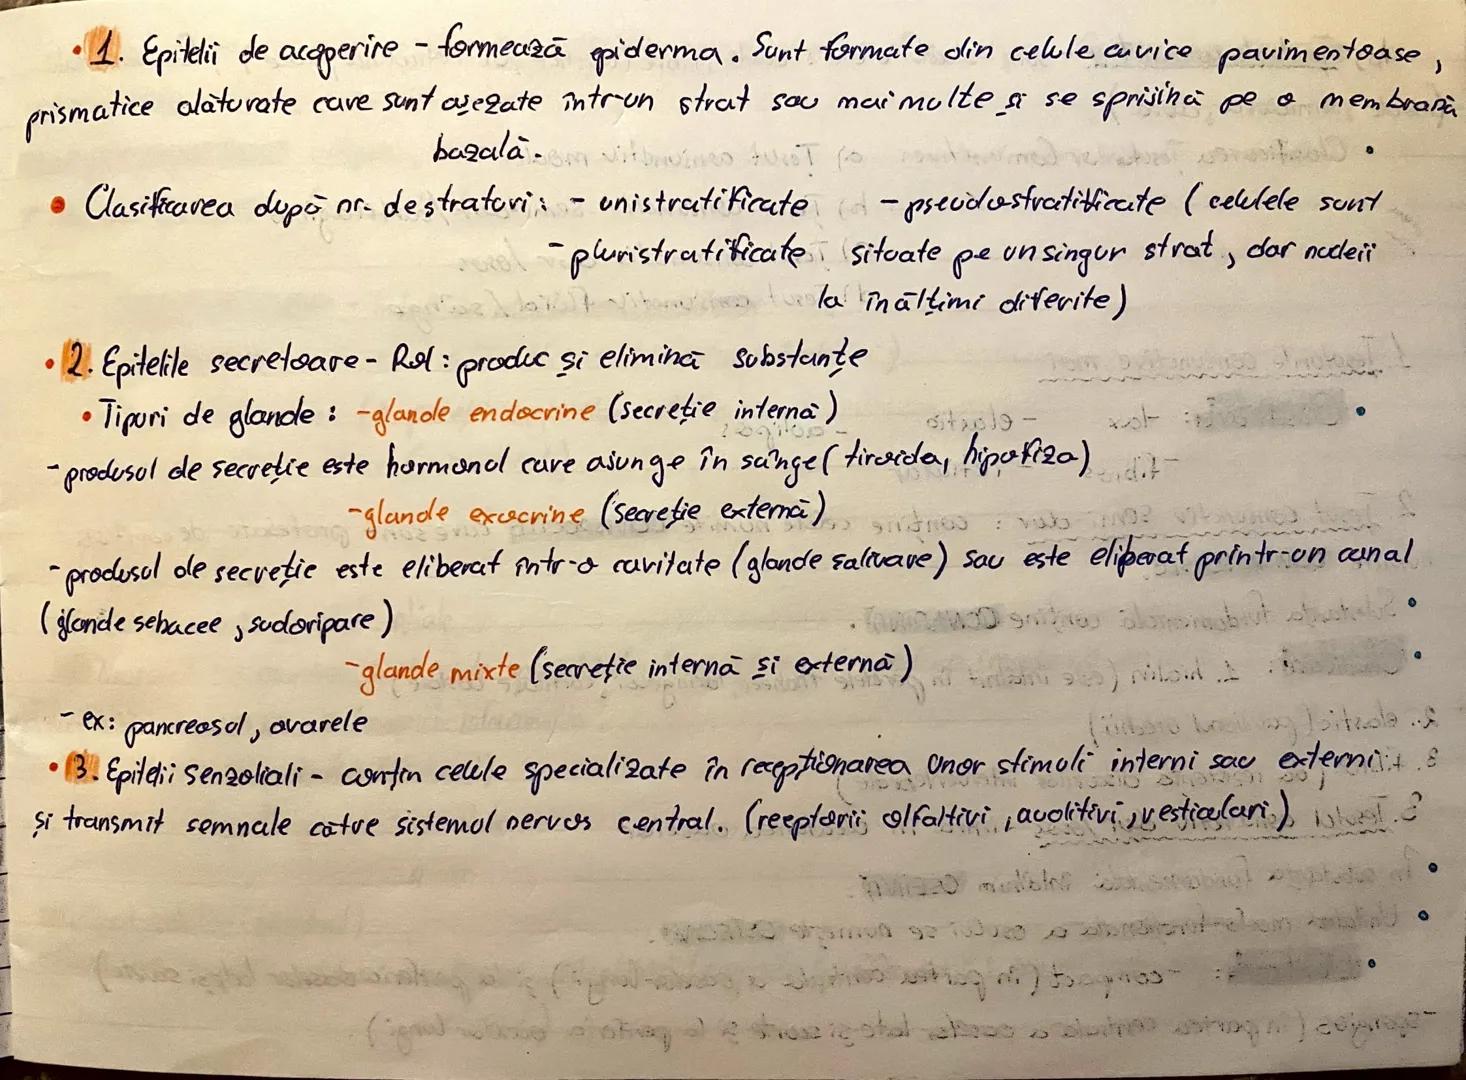 • 1. Epitelii de acoperire - formează epiderma. Sunt formate din celule cuvice pavimentoase,
prismatice alăturate care sunt așezate într-un strat sau mai multe și se sprijină pe o membrană
bazală.
• Clasificarea după nr. de straturi: - unistratificate - pseudostratificate (celulele sunt
- pluristratificate situate pe un singur strat, dar nucleii
la înălțimi diferite)
• 2. Epitelile secretoare - Rol: produc și elimină substanțe
• Tipuri de glande: - glande endocrine (secreție internă)
- produsul de secreție este hormonul care ajunge în sânge (tiroida, hipofiza)
- glande exocrine (secreție externă)
- produsul de secreție este eliberat într-o cavitate (glande salivare) sau este eliberat printr-un canal
(glande sebacee, sudoripare)
- glande mixte (secreție internă și externă)
- ex: pancreasul, ovarele
• 3. Epitelii senzoliali - conțin celule specializate în recepționarea unor stimuli interni sau externi
și transmit semnale către sistemul nervos central. (receptorii olfaltivi, auditivi, vesticulari)